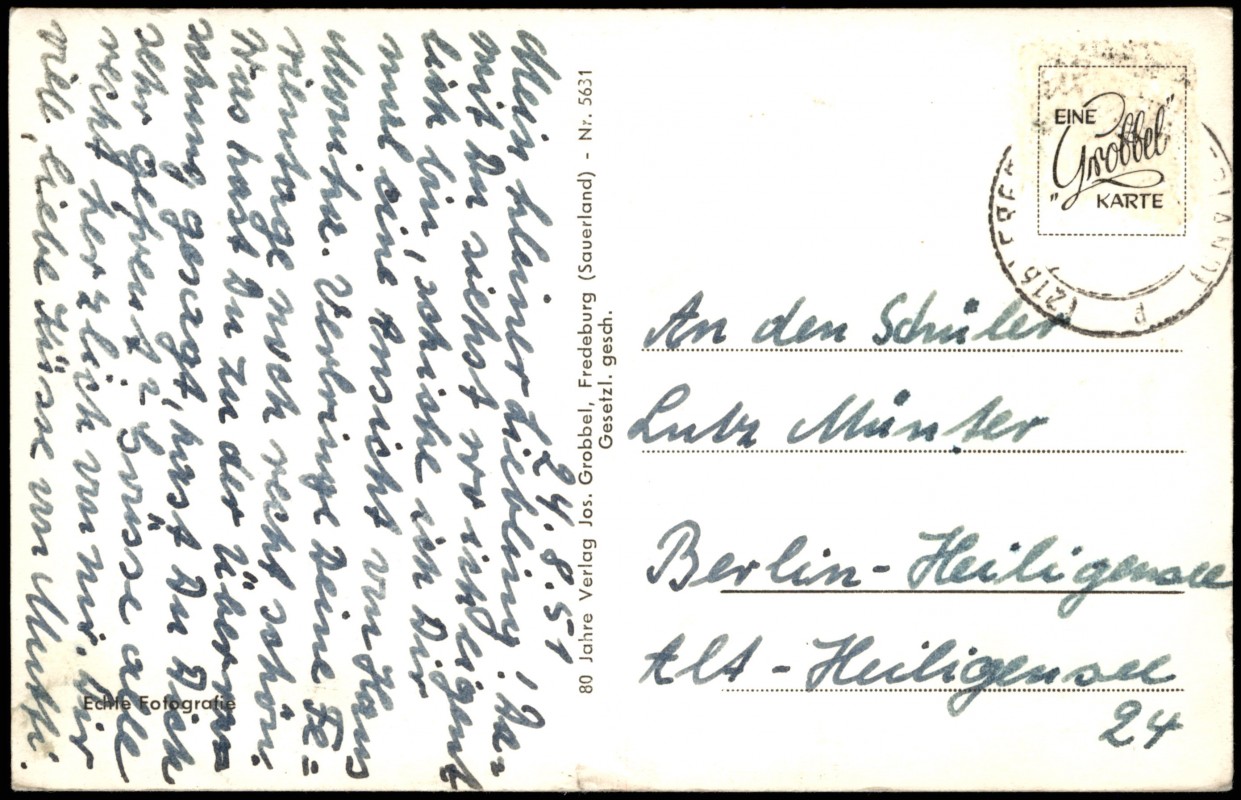 24.8.51
Mein kleiner Liebling! Da=
mit Du siehst wo ich eigent
lich bin, schicke ich Dir
mal eine Ansicht vom Haus
Verbringe Deine Fe=
rientage noch recht schön.
Was hast Du zu der Überra
schung gesagt, hast Du Dich
sehr gefreut? Grüsse alle
recht herzlich von mir. Dir
viele, liebe Küsse von Mutti.
Echte Fotografie
80 Jahre Verlag Jos. Grobbel, Fredeburg (Sauerland) - Nr. 5631
Gesetzl. gesch.
EINE
„Grobbel"
KARTE
An den Schüler
Lutz Münter
Berlin-Heiligensee
Alt-Heiligensee
24